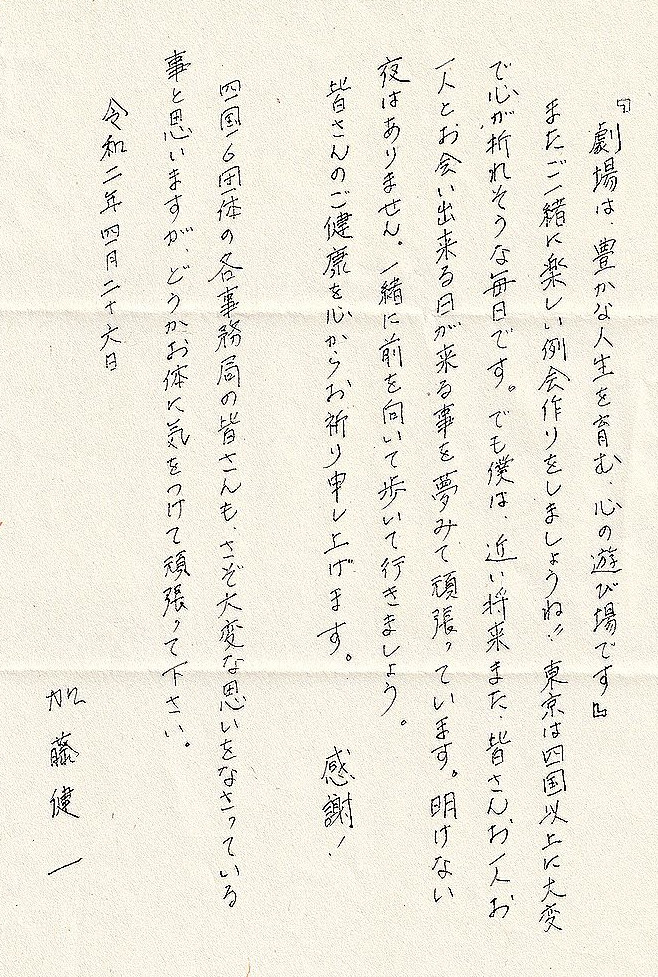 『劇場は、豊かな人生を育む、心の遊び場です』
またご一緒に楽しい例会作りをしましょうね!! 東京は四国以上に大変
で心が折れそうな毎日です。でも僕は、近い将来また、皆さんお一人お
一人とお会い出来る日が来る事を夢みて頑張っています。明けない
夜はありません。一緒に前を向いて歩いて行きましょう。
皆さんのご健康を心からお祈り申し上げます。 感謝!
四国6団体の各事務局の皆さんも、さぞ大変な思いをなさっている
事と思いますが、どうかお体に気をつけて頑張って下さい。
令和二年四月二十六日
加藤健一